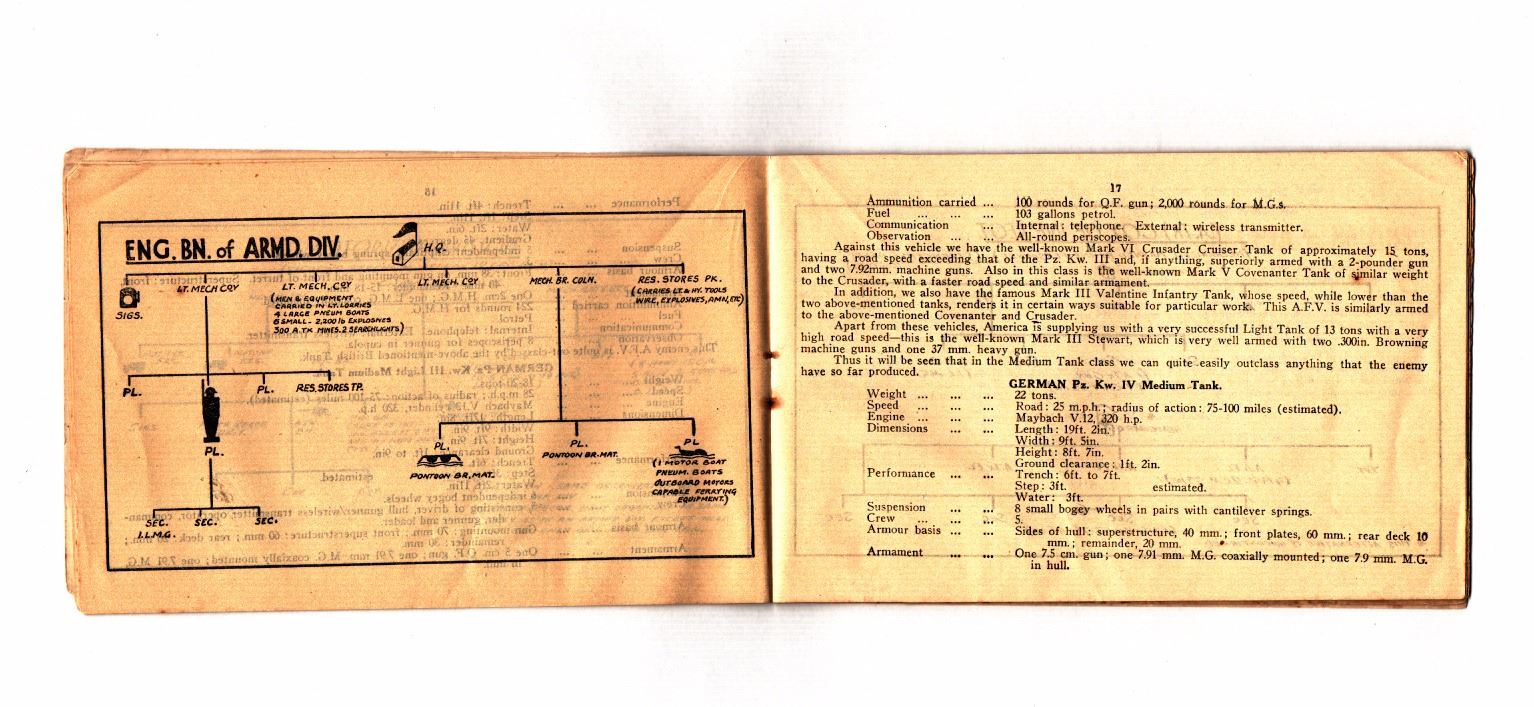 ENG. BN. of ARMD. DIV.
H.Q.
SIGS.
LT. MECH COY
LT. MECH. COY
(MEN & EQUIPMENT
CARRIED IN LT. LORRIES
4 LARGE PNEUM BOATS
8 SMALL - 2,200 lb EXPLOSIVES
300 A.TK. MINES. 2 SEARCHLIGHTS)
LT. MECH. COY
MECH. BR. COLN.
RES. STORES PK.
(CARRIES LT. & HY. TOOLS
WIRE, EXPLOSIVES, AMN, ETC)
PL.
PL.
PL.
RES. STORES TP.
SEC.
1 L.M.G.
SEC.
SEC.
PL.
PONTOON BR. MAT.
PL.
PONTOON BR. MAT.
PL
(1 MOTOR BOAT
PNEUM. BOATS
OUTBOARD MOTORS
CAPABLE FERRYING
EQUIPMENT.)
17
Ammunition carried ... 100 rounds for Q.F. gun; 2,000 rounds for M.G.s.
Fuel ... ... ... 103 gallons petrol.
Communication ... Internal: telephone. External: wireless transmitter.
Observation ... ... All-round periscopes.
Against this vehicle we have the well-known Mark VI Crusader Cruiser Tank of approximately 15 tons,
having a road speed exceeding that of the Pz. Kw. III and, if anything, superiorly armed with a 2-pounder gun
and two 7.92mm. machine guns. Also in this class is the well-known Mark V Covenanter Tank of similar weight
to the Crusader, with a faster road speed and similar armament.
In addition, we also have the famous Mark III Valentine Infantry Tank, whose speed, while lower than the
two above-mentioned tanks, renders it in certain ways suitable for particular work. This A.F.V. is similarly armed
to the above-mentioned Covenanter and Crusader.
Apart from these vehicles, America is supplying us with a very successful Light Tank of 13 tons with a very
high road speed—this is the well-known Mark III Stewart, which is very well armed with two .300in. Browning
machine guns and one 37 mm. heavy gun.
Thus it will be seen that in the Medium Tank class we can quite easily outclass anything that the enemy
have so far produced.
GERMAN Pz. Kw. IV Medium Tank.
Weight ... ... ... 22 tons.
Speed ... ... ... Road: 25 m.p.h.; radius of action: 75-100 miles (estimated).
Engine ... ... ... Maybach V.12, 320 h.p.
Dimensions ... ... Length: 19ft. 2in.
Width: 9ft. 5in.
Height: 8ft. 7in.
Ground clearance: 1ft. 2in.
Performance ... ... Trench: 6ft. to 7ft.
Step: 3ft. estimated.
Water: 3ft.
Suspension ... ... 8 small bogey wheels in pairs with cantilever springs.
Crew ... ... ... 5.
Armour basis ... ... Sides of hull: superstructure, 40 mm.; front plates, 60 mm.; rear deck 10
mm.; remainder, 20 mm.
Armament ... ... One 7.5 cm. gun; one 7.91 mm. M.G. coaxially mounted; one 7.9 mm. M.G.
in hull.